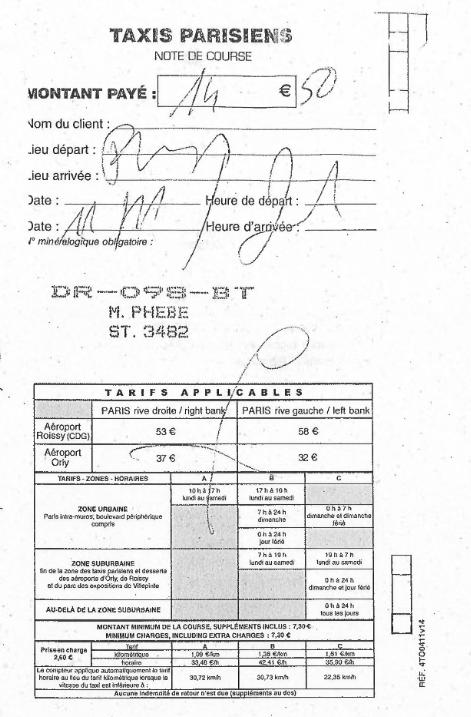 TAXIS PARISIENS
NOTE DE COURSE
MONTANT PAYÉ : 14 € 50
Nom du client :
Lieu départ :
Lieu arrivée :
Date : Heure de départ :
Date : 11 Heure d'arrivée :
N° minéralogique obligatoire :
DR-098-BT
M. PHEBE
ST. 3482
TARIFS APPLICABLES
PARIS rive droite / right bank PARIS rive gauche / left bank
Aéroport Roissy (CDG) 53 € 58 €
Aéroport Orly 37 € 32 €
TARIFS - ZONES - HORAIRES A B C
10 h à 17 h 17 h à 10 h
lundi au samedi lundi au samedi
ZONE URBAINE
Paris intra-muros, boulevard périphérique
compris
7 h à 24 h
dimanche
0 h à 7 h
dimanche et dimanche
férié
0 h à 24 h
jour férié
ZONE SUBURBAINE
fin de la zone des taxis parisiens et desserte
des aéroports d'Orly, de Roissy
et du parc des expositions de Villepinte
7 h à 19 h
lundi au samedi
19 h à 7 h
lundi au samedi
0 h à 24 h
dimanche et jour férié
AU-DELÀ DE LA ZONE SUBURBAINE
0 h à 24 h
tous les jours
MONTANT MINIMUM DE LA COURSE, SUPPLÉMENTS INCLUS : 7,30 €
MINIMUM CHARGES, INCLUDING EXTRA CHARGES : 7,30 €
Prise en charge
2,60 €
Tarif A B C
kilométrique 1,09 €/km 1,38 €/km 1,61 €/km
horaire 33,40 €/h 42,41 €/h 35,90 €/h
Le compteur applique automatiquement le tarif
horaire au lieu du tarif kilométrique lorsque la
vitesse du taxi est inférieure à :
30,72 km/h 30,73 km/h 22,35 km/h
Aucune indemnité de retour n'est due (suppléments au dos)
RÉF. 4TO0411v14